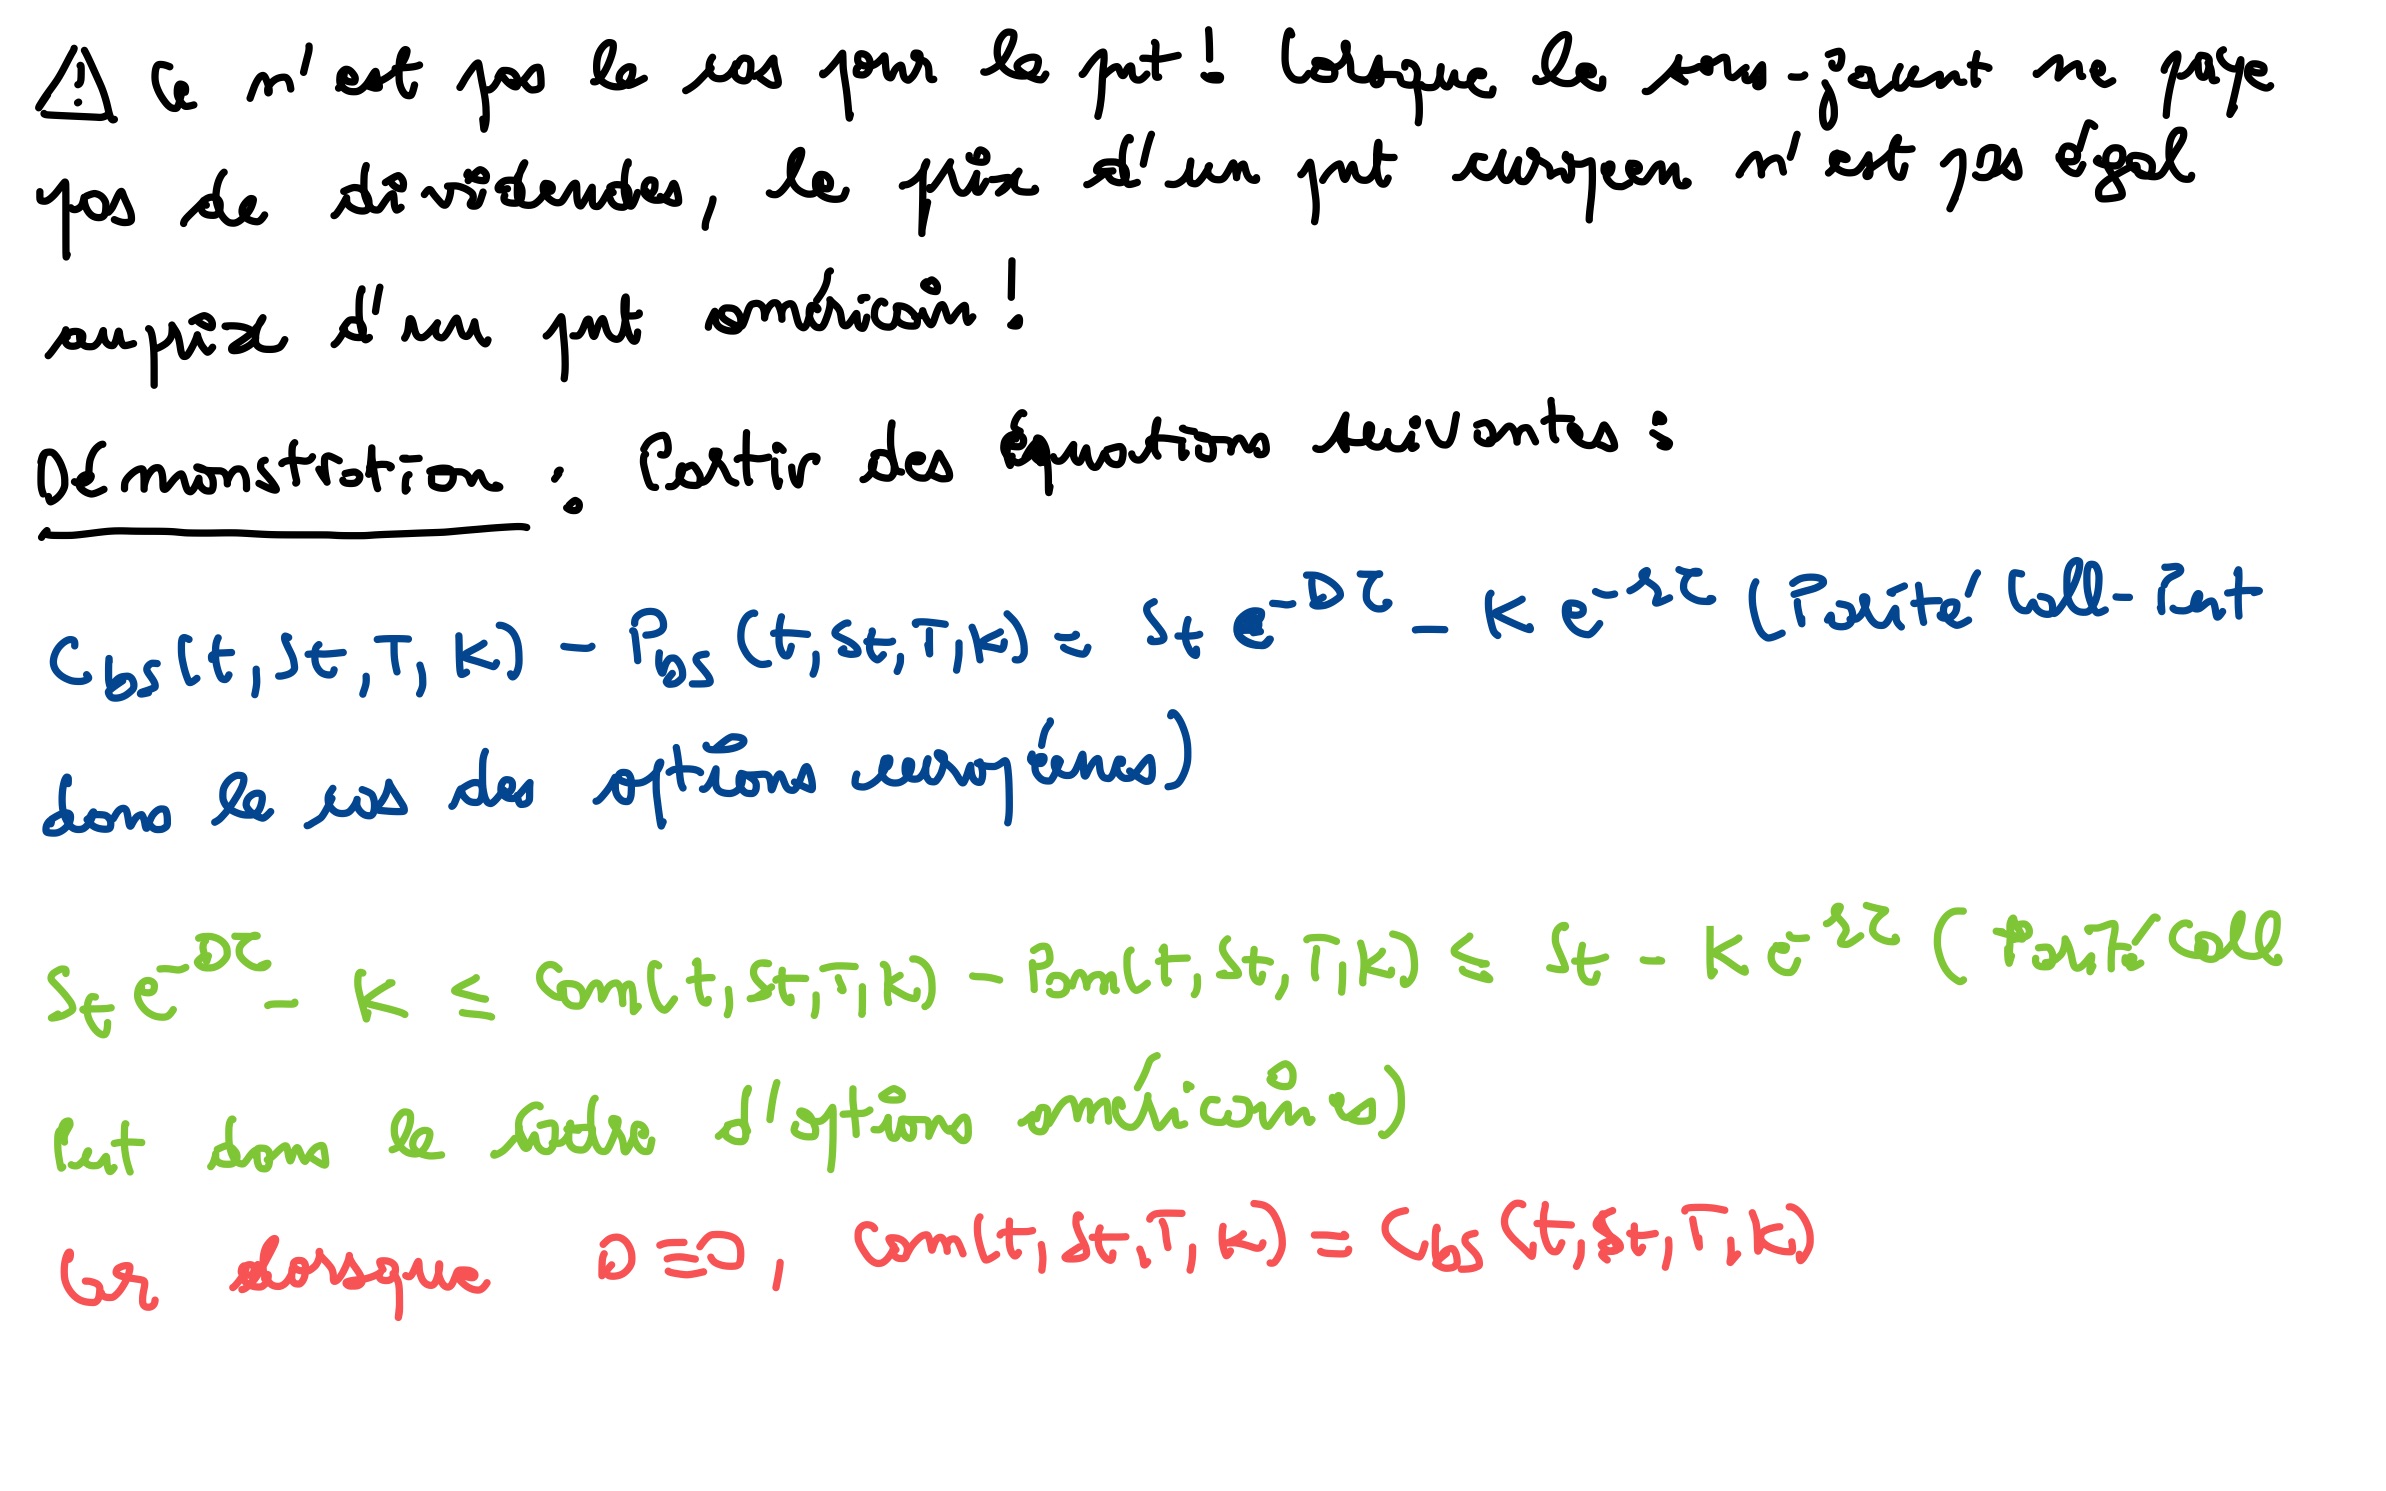 ⚠ Ce n'est pas le cas pour le put! Lorsque le sous-jacent ne paye
pas de dividendes, le prix d'un put européen n'est pas égal
au prix d'un put américain!
Démonstration : Partir des équations suivantes :
C_bs(t, St, T, K) - P_bs(t, St, T, K) = S_t e^{-Dτ} - K e^{-rτ} (Parité Call-Put
dans le cas des options européennes)
S_t e^{-Dτ} - K ≤ Cam(t, St, T, K) - Pam(t, St, T, K) ≤ St - K e^{-rτ} (Parité Call
Put dans le cadre d'option américaines)
Or lorsque D = 0, Cam(t, St, T, K) = C_BS(t, St, T, K)